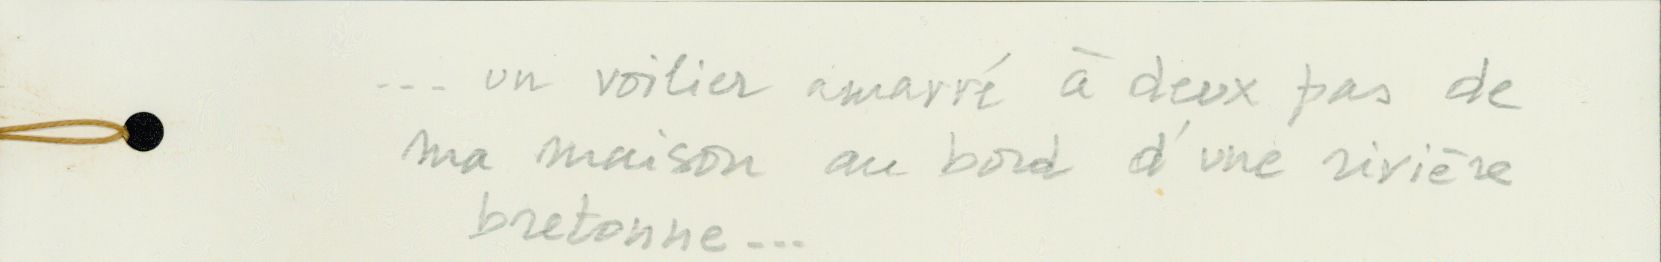 ... un voilier amarré à deux pas de
ma maison au bord d'une rivière
bretonne...